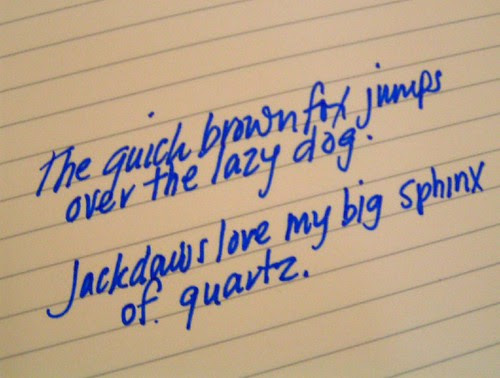 The quick brown fox jumps
over the lazy dog.
Jackdaws love my big sphinx
of. quartz.